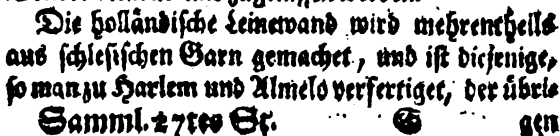 Die holländische Leinewand wird mehrentheils
aus schlesischen Garn gemachet, und ist diejenige,
so man zu Harlem und Almelo verfertiget, der übri-
Samml. 27tes St. G gen